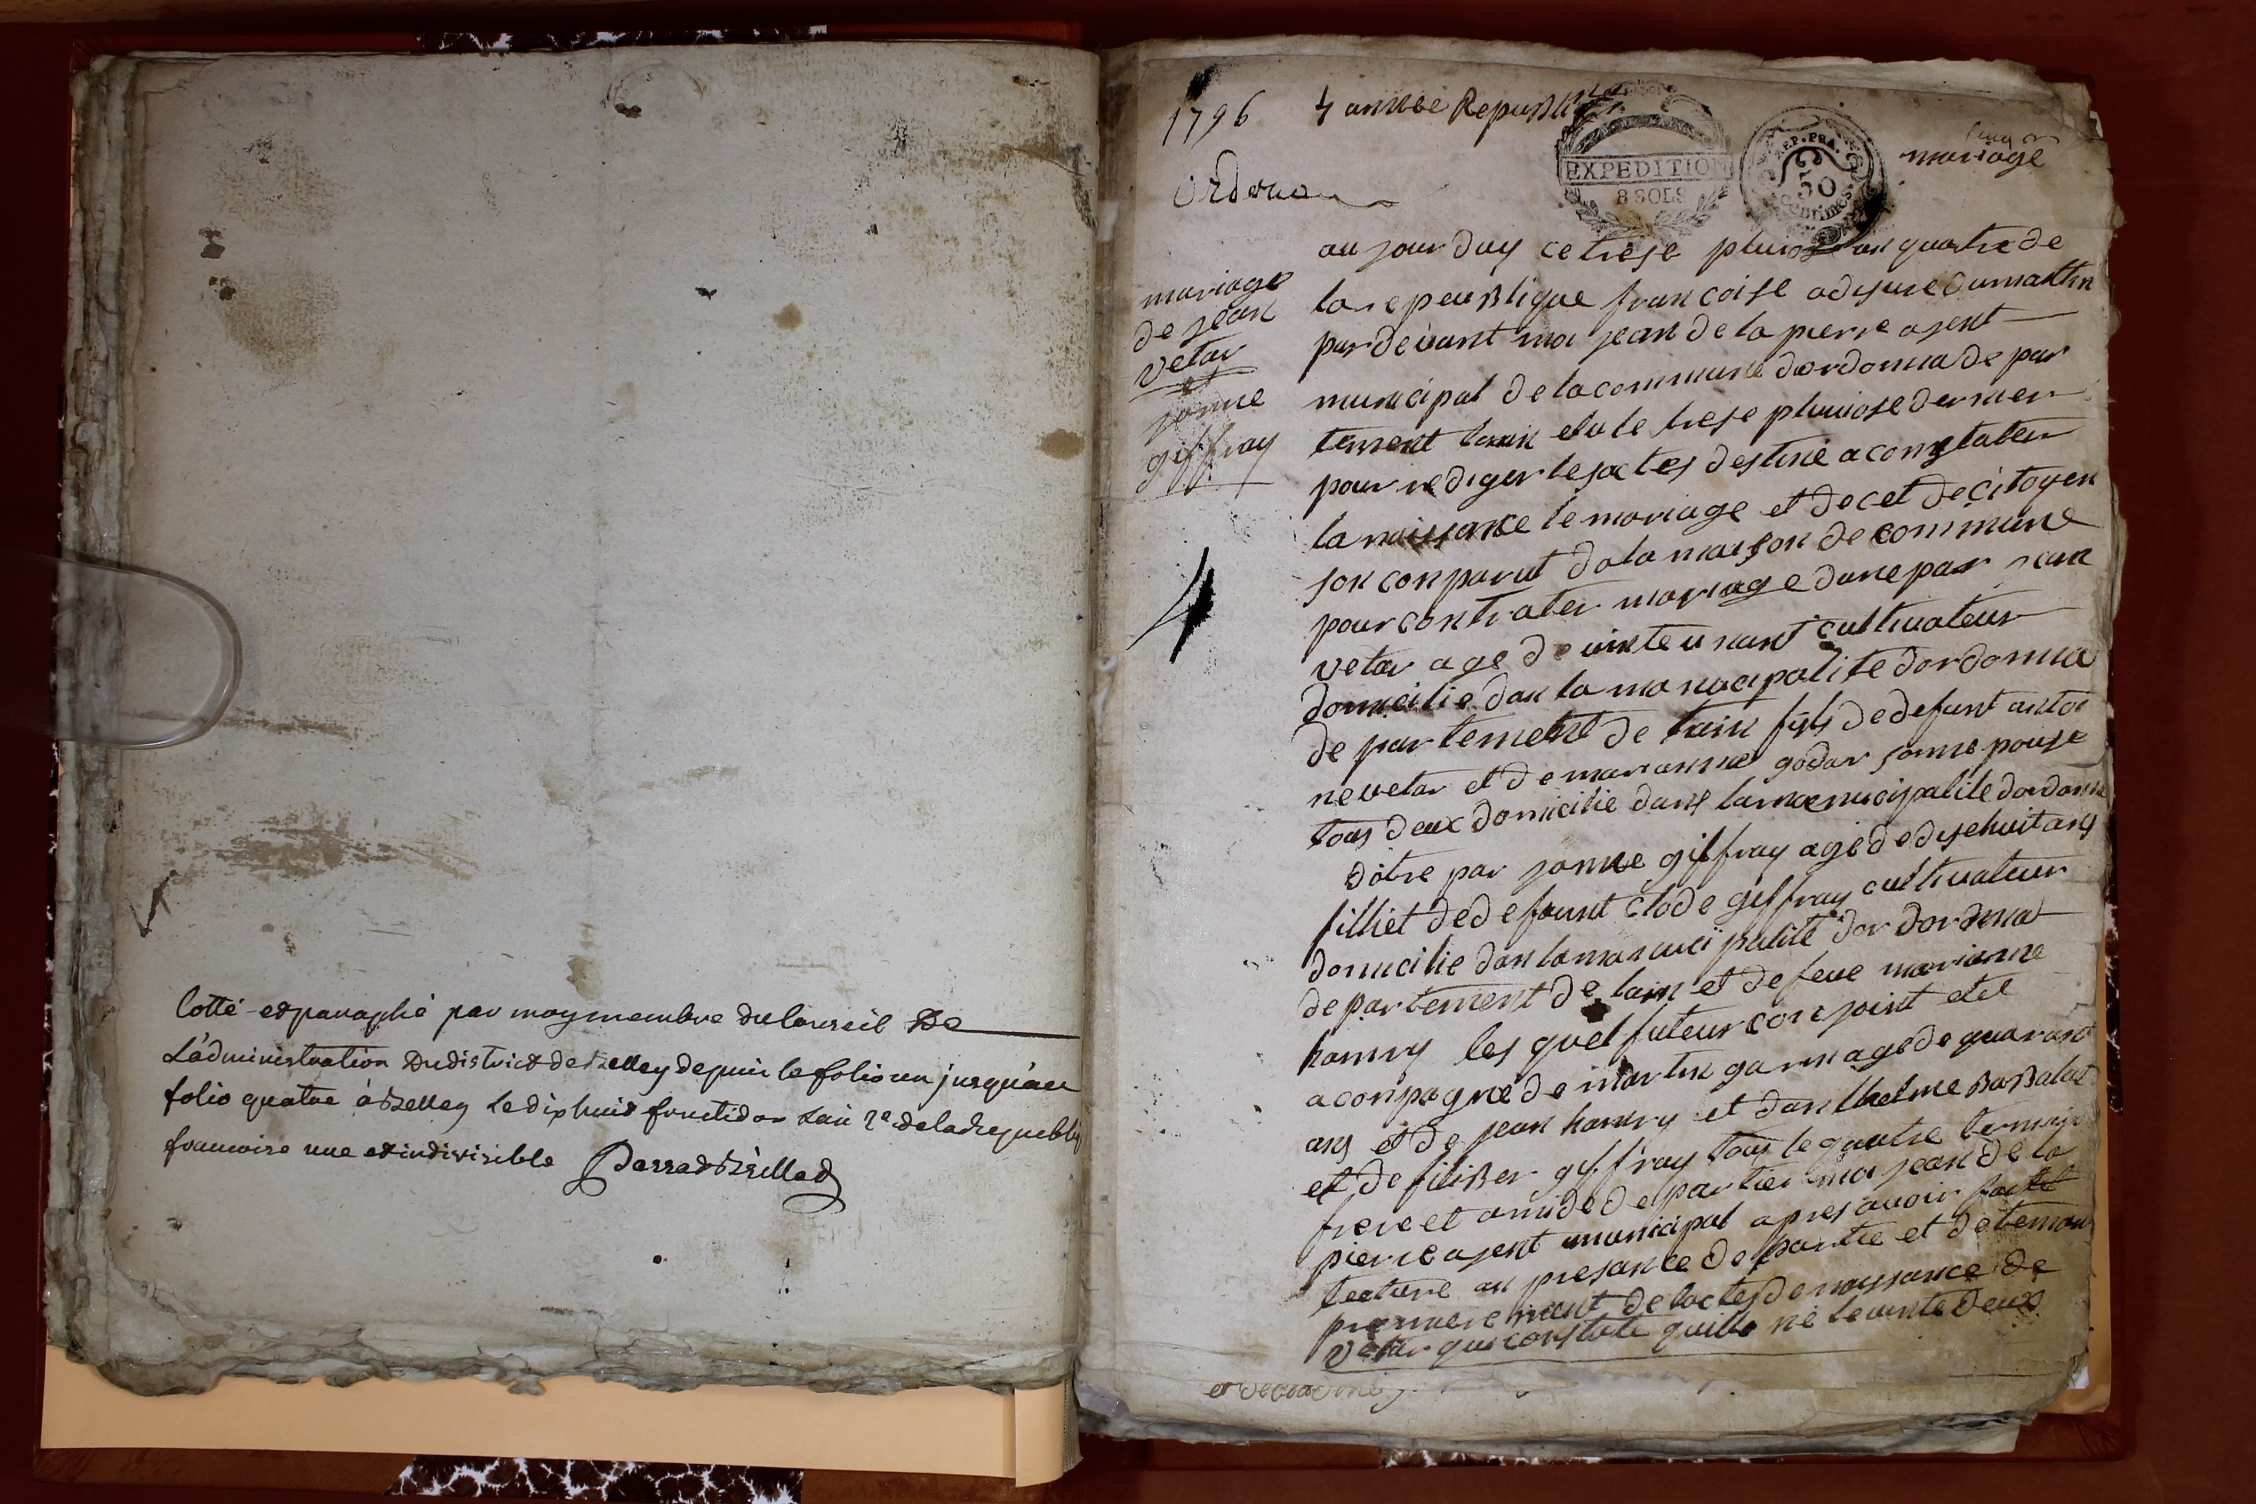 Cotté et paraphé par moy membre du Conseil De
L'administration Du district de Belley depuis le folio un jusqu'au
folio quatre à Belley Le dix huit fructidor L'an 2e de la Republiq
francoise une et indivisible
1796 4 année Republi
EXPEDITION
8 SOLS
REP. FRA.
50
centimes
mariage
Ordona
mariage
de jean
vetar
et
janne
giffray
au jourduy ce trese pluviose an quatre de
la repeublique francoise a dis ure du mattin
par devant moi jean de la pierre agent
municipal de la commune dordonna de par
tement lain elu le trese pluviose dernier
pour rediger les actes destiné a constater
la naissance le mariage et decet de citoyen
son conparut da la maison de commune
pour contrater mariage dune par jean
vetar age de vinte u nant cultivateur
domicilie dan la manucipalite dordonna
de partement de lain fils de defunt antoi
ne vetar et de marianne godar sonne pouse
tous deux domicilie dans la manucipalite dordonna
dotre par janne giffray agé de dise huit ans
filliet de defount clode giffray cultivateur
domicilie dan la manucipalite dor dordona
departement de lain et de feue marianne
hanrry les quel futeur conjoint etet
aconpagné de martin garin age de quarant
ans et de jean hanrry et danthelme Babolat
et de filiber giffray tous le quatre temoin
frere et ami de de partier moi jean de la
pierre agent municipal apres avoir fait
lecture an presance de partie et de temoin
premierement de lactes de naissance de
vetar qui constate quille né le vinte deux